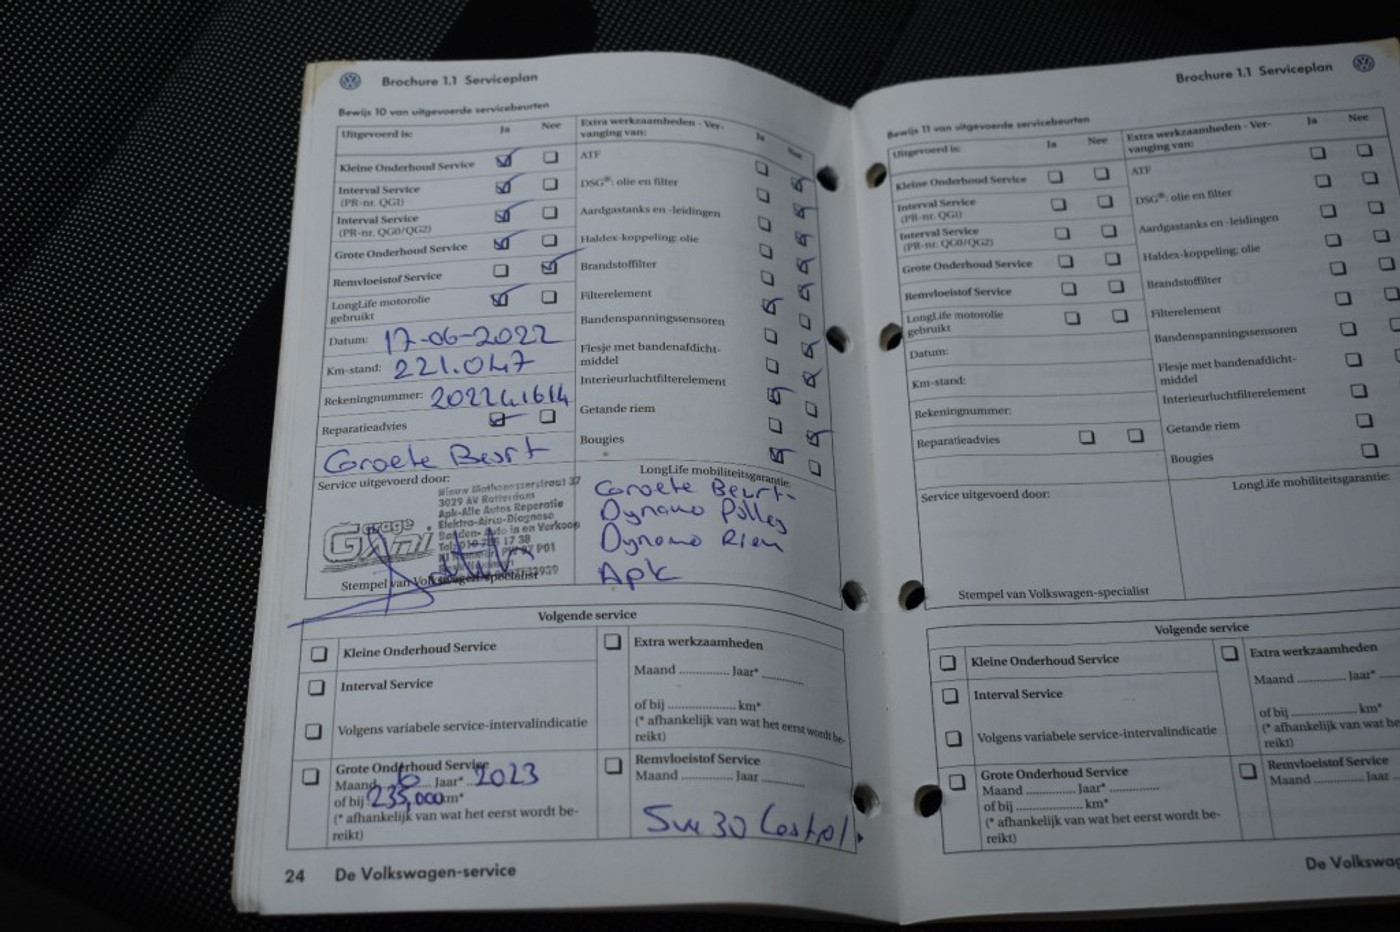 Brochure 1.1 Serviceplan
Bewijs 10 van uitgevoerde servicebeurten
Uitgevoerd is:
Ja
Nee
Kleine Onderhoud Service
Interval Service
(PR-nr. QG1)
Interval Service
(PR-nr. QG0/QG2)
Grote Onderhoud Service
Remvloeistof Service
LongLife motorolie
gebruikt
Datum: 17-06-2022
Km-stand: 221.047
Rekeningnummer: 202241614
Reparatieadvies
Groete Beurt
Service uitgevoerd door:
3029 AV Rotterdam
Apk-Alle Autos Reparatie
Elektro-Airco-Diagnose
Banden- Auto in en Verkoop
Garage
GANI
Stempel van Volkswagen-specialist
Extra werkzaamheden - Ver-
vanging van:
Ja
Nee
ATF
DSG®: olie en filter
Aardgastanks en -leidingen
Haldex-koppeling: olie
Brandstoffilter
Filterelement
Bandenspanningssensoren
Flesje met bandenafdicht-
middel
Interieurluchtfilterelement
Getande riem
Bougies
LongLife mobiliteitsgarantie:
Groete Beurt-
Dynamo Polley
Dynamo Riem
Apk
Volgende service
Kleine Onderhoud Service
Interval Service
Volgens variabele service-intervalindicatie
Grote Onderhoud Service
Maand 6 Jaar* 2023
of bij 235,000 km*
(* afhankelijk van wat het eerst wordt be-
reikt)
Extra werkzaamheden
Maand .............. Jaar* ............
of bij .................... km*
(* afhankelijk van wat het eerst wordt be-
reikt)
Remvloeistof Service
Maand .............. Jaar ............
5w30 Castrol
24 De Volkswagen-service
Brochure 1.1 Serviceplan
Bewijs 11 van uitgevoerde servicebeurten
Uitgevoerd is:
Ja
Nee
Kleine Onderhoud Service
Interval Service
(PR-nr. QG1)
Interval Service
(PR-nr. QG0/QG2)
Grote Onderhoud Service
Remvloeistof Service
LongLife motorolie
gebruikt
Datum:
Km-stand:
Rekeningnummer:
Reparatieadvies
Service uitgevoerd door:
Stempel van Volkswagen-specialist
Extra werkzaamheden - Ver-
vanging van:
Ja
Nee
ATF
DSG®: olie en filter
Aardgastanks en -leidingen
Haldex-koppeling: olie
Brandstoffilter
Filterelement
Bandenspanningssensoren
Flesje met bandenafdicht-
middel
Interieurluchtfilterelement
Getande riem
Bougies
LongLife mobiliteitsgarantie:
Volgende service
Kleine Onderhoud Service
Interval Service
Volgens variabele service-intervalindicatie
Grote Onderhoud Service
Maand .............. Jaar* ..............
of bij .................... km*
(* afhankelijk van wat het eerst wordt be-
reikt)
Extra werkzaamheden
Maand .............. Jaar*
of bij .................... km*
(* afhankelijk van wat he
reikt)
Remvloeistof Service
Maand .............. Jaar
De Volkswag